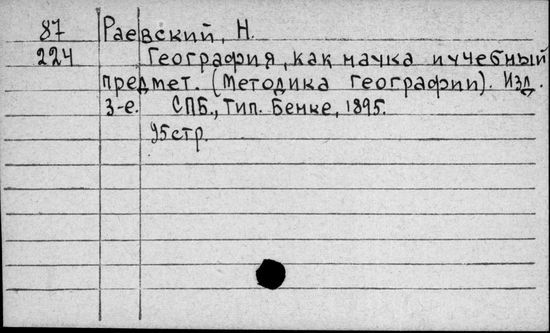 87 Раевский, Н.
224 География, как наука и учебный
предмет. (Методика географии). Изд.
3-е. СПБ., Тип. Бенке, 1895.
95 стр.